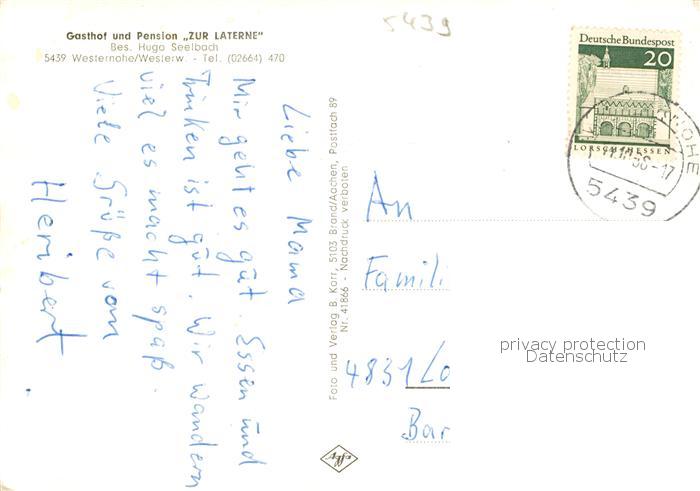 5439
Gasthof und Pension „ZUR LATERNE"
Bes. Hugo Seelbach
5439 Westernohe/Westerw. - Tel. (02664) 470
Deutsche Bundespost
20
LORSCH/HESSEN
5439
Liebe Mama
Mir geht es gut. Essen und
Trinken ist gut. Wir wandern
viel es macht spaß.
Viele Grüße von
Heribert.
Foto und Verlag B. Korr, 5103 Brand/Aachen, Postfach 89
Nr. 41866 - Nachdruck verboten
An
Famili
4831 Lo
Bar
privacy protection
Datenschutz